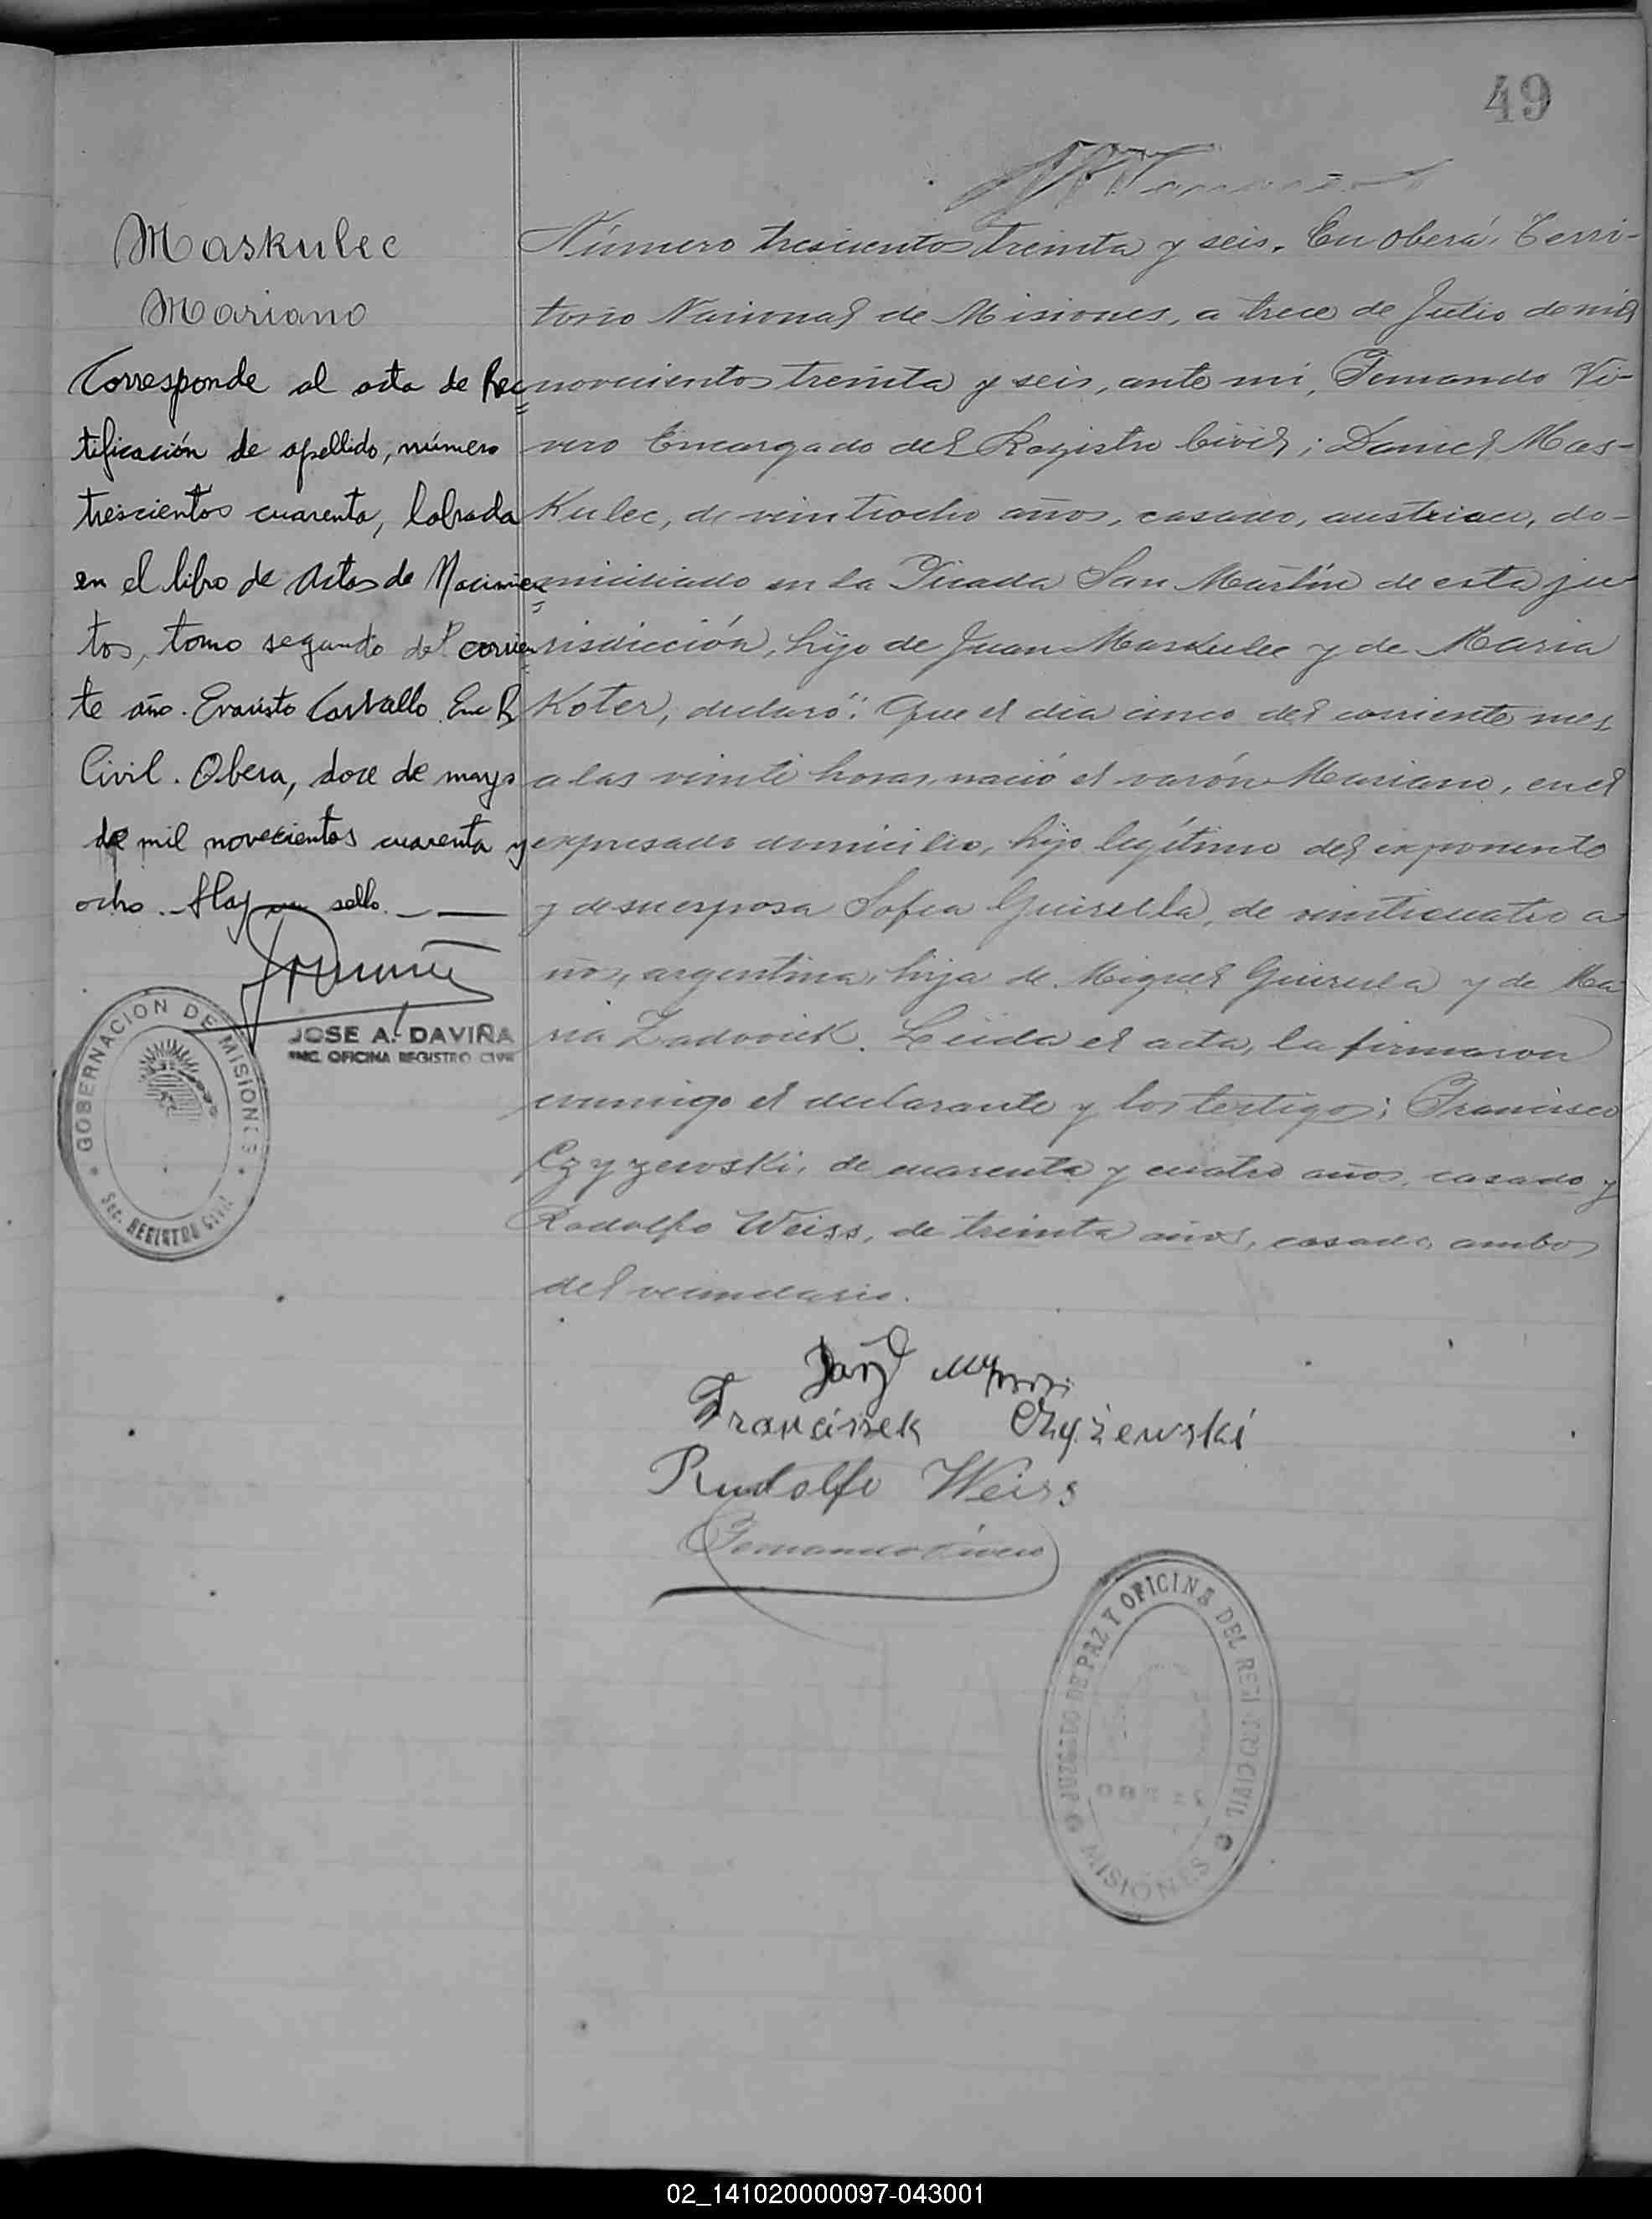 49
Maskulec
Mariano
Corresponde al acta de Rec=
tificación de apellido, número
trescientos cuarenta, labrada
en el libro de Actas de Nacimien=
tos, tomo segundo del corrien=
te año. Evaristo Carvallo Enc R
Civil. Obera, doce de mayo
de mil novecientos cuarenta y
ocho. Hay un sello.
JOSE A. DAVIÑA
ENC. OFICINA REGISTRO CIVIL
GOBERNACION DE MISIONES
Sec. REGISTRO CIVIL
Número trescientos treinta y seis. En Oberá, Terri-
torio Nacional de Misiones, a trece de Julio de mil
novecientos treinta y seis, ante mi, Fernando Vi-
vero Encargado del Registro Civil; Daniel Mas-
Kulec, de veintiocho años, casado, austriaco, do-
miciliado en la Picada San Martín de esta ju
risdicción, hijo de Juan Maskulec y de Maria
Koter, declaró: Que el dia cinco del corriente mes
a las veinte horas, nació el varón Mariano, en el
expresado domicilio, hijo legítimo del exponente
y de su esposa Sofia Guirella, de veinticuatro a
ños, argentina, hija de Miguel Guirula y de Ma
ria Zadovick. Leida el acta, la firmaron
conmigo el declarante y los testigos; Francisco
Czyzewski, de cuarenta y cuatro años, casado y
Rodolfo Weiss, de treinta años, casado, ambos
del vecindario.
Franciszek Czyżewski
Rudolfo Weiss
Fernando Vivero
JUZGADO DE PAZ Y OFICINA DEL REGISTRO CIVIL
OBERA
MISIONES
02_141020000097-043001